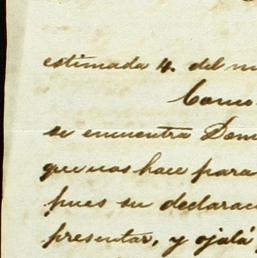 estimada 4. del m
Como
se encuentra Don
que nos hace para
pues su declarac
presentar, y ojalá